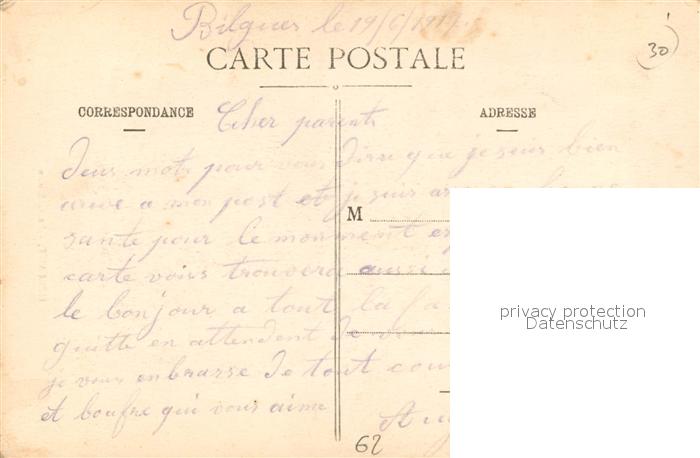 Bilques le 19/6/1917
(30)
CARTE POSTALE
CORRESPONDANCE
ADRESSE
Cher parents
Deus mots pour vous dire que je suis bien
arivé a mon post et je suis
santé pour le monment
carte vous trouvera aussi
le bonjour a tout la fa
M
quitte en attendent de vous
je vous enbrasse de tout cou
et boufre qui vous aime
62
privacy protection
Datenschutz